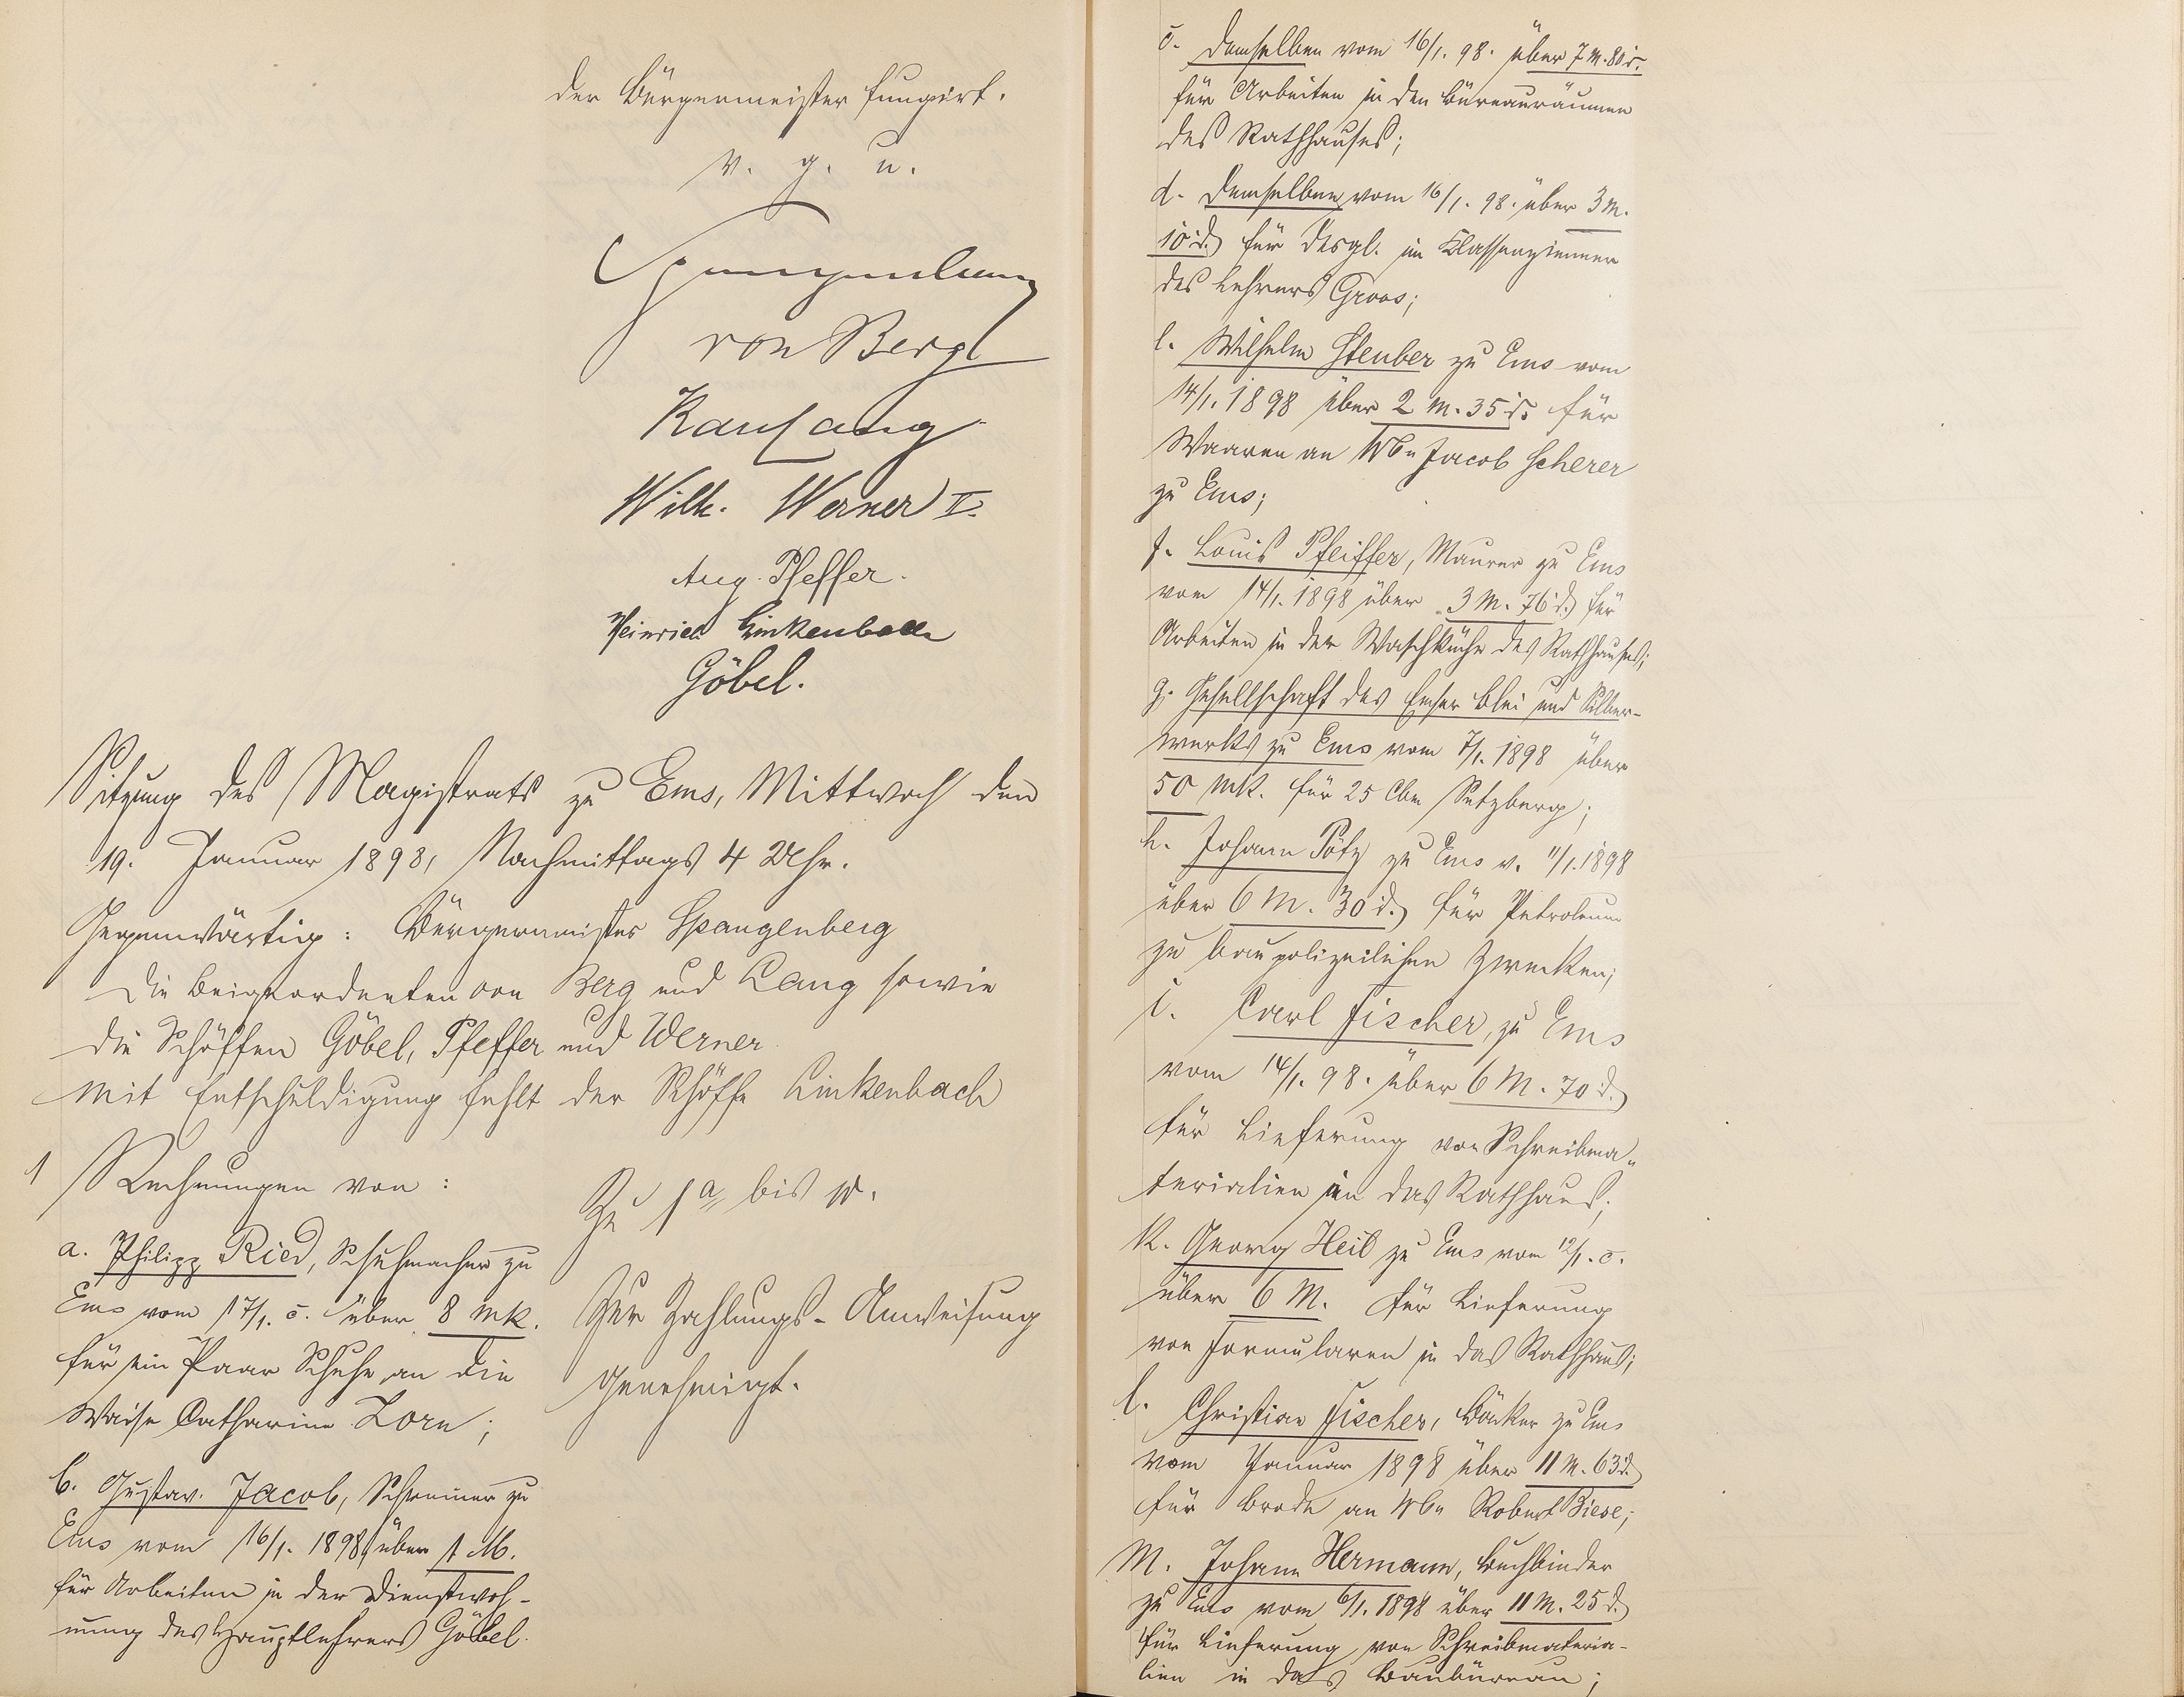 der Bürgermeister fungirt.
v. g. u.
Spangenberg
von Berg
Karl Lang
Wilh. Werner II.
Aug. Pfeffer.
Heinrich Linkenbach
Göbel.
Sitzung des Magistrats zu Ems, Mittwoch den
19. Januar 1898, Nachmittags 4 Uhr.
Gegenwärtig: Bürgermeister Spangenberg
die Beigeordneten von Berg und Lang sowie
die Schöffen Göbel, Pfeffer und Werner
Mit Entschuldigung fehlt der Schöffe Linkenbach
1 Rechnungen von:
a. Philipp Ried, Schuhmacher zu
Ems vom 17/1. c. über 8 Mk.
für ein Paar Schuhe an die
Waise Catharine Zorn;
b. Gustav Jacob, Schreiner zu
Ems vom 16/1. 1898 über 1 M.
für Arbeiten in der Dienstwoh-
nung des Hauptlehrers Göbel.
Zu 1 a bis w.
Zur Zahlungs-Anweisung
genehmigt.
c. Demselben vom 16/1. 98. über 7 M. 80 d.
für Arbeiten in den Büreauräumen
des Rathhauses;
d. Demselben vom 16/1. 98. über 3 M.
10 d. für desgl. im Klassenzimmer
des Lehrers Groos;
e. Wilhelm Steuber zu Ems vom
14/1. 1898 über 2 M. 35 d. für
Waaren an Wb. Jacob Scherer
zu Ems;
f. Louis Pfeiffer, Maurer zu Ems
vom 14/1. 1898 über 3 M. 76 d. für
Arbeiten in der Waschküche des Rathhauses;
g. Gesellschaft des Emser Blei und Silber-
werks zu Ems vom 7/1. 1898 über
50 Mk. für 25 Cbm Setzberg;
h. Johann Pötz zu Ems v. 11/1. 1898
über 6 M. 30 d. für Petroleum
zu baupolizeilichen Zwecken;
i. Carl Fischer, zu Ems
vom 14/1. 98. über 6 M. 70 d.
für Lieferung von Schreibma-
terialien in das Rathhaus;
k. Georg Heil zu Ems vom 12/1. c.
über 6 M. für Lieferung
von Formularen in das Rathhaus;
l. Christian Fischer, Bäcker zu Ems
vom Januar 1898 über 11 M. 63 d.
für Brode an Wb. Robert Biese;
m. Johann Hermann, Buchbinder
zu Ems vom 6/1. 1898 über 11 M. 25 d.
für Lieferung von Schreibmateria-
lien in das Baubüreau;